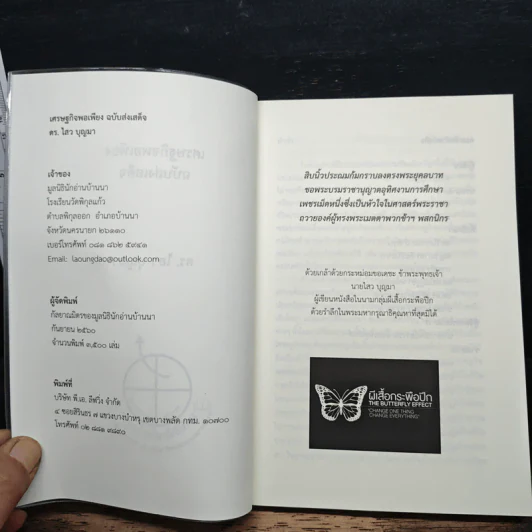 เศรษฐกิจพอเพียง ฉบับส่งเสด็จ
ดร. ไสว บุญมา
เจ้าของ
มูลนิธินักอ่านบ้านนา
โรงเรียนวัดพิกุลแก้ว
ตำบลพิกุลออก อำเภอบ้านนา
จังหวัดนครนายก ๒๖๑๑๐
เบอร์โทรศัพท์ ๐๘๑ ๘๒๒ ๕๙๕๑
Email: laoungdao@outlook.com
ผู้จัดพิมพ์
กัลยาณมิตรของมูลนิธินักอ่านบ้านนา
กันยายน ๒๕๖๐
จำนวนพิมพ์ ๑,๕๐๐ เล่ม
พิมพ์ที่
บริษัท พี.เอ. ลีฟวิ่ง จำกัด
๔ ซอยสิรินธร ๗ แขวงบางบำหรุ เขตบางพลัด กทม. ๑๐๗๐๐
โทรศัพท์ ๐๒ ๘๘๑ ๙๘๙๐
สิบนิ้วประณมก้มกราบลงตรงพระยุคลบาท
ขอพระบรมราชานุญาตอุทิศงานการศึกษา
เพชรเม็ดหนึ่งซึ่งเป็นหัวใจในศาสตร์พระราชา
ถวายองค์ผู้ทรงพระเมตตาพวกข้าฯ พสกนิกร
ด้วยเกล้าด้วยกระหม่อมขอเดชะ ข้าพระพุทธเจ้า
นายไสว บุญมา
ผู้เขียนหนังสือในนามกลุ่มผีเสื้อกระพือปีก
ด้วยรำลึกในพระมหากรุณาธิคุณหาที่สุดมิได้
ผีเสื้อกระพือปีก
THE BUTTERFLY EFFECT
"CHANGE ONE THING
CHANGE EVERYTHING"